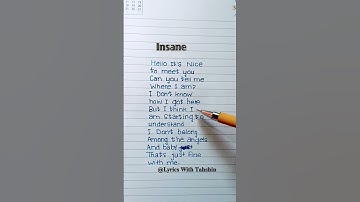 Insane
Hello It's Nice
to meet you
Can you tell me
Where I am?
I Don't know
how I got here
But I think I
am Starting to
understand
I Don't belong
Among the angels
And baby
That's just fine
with me.
@Lyrics With Tahshin